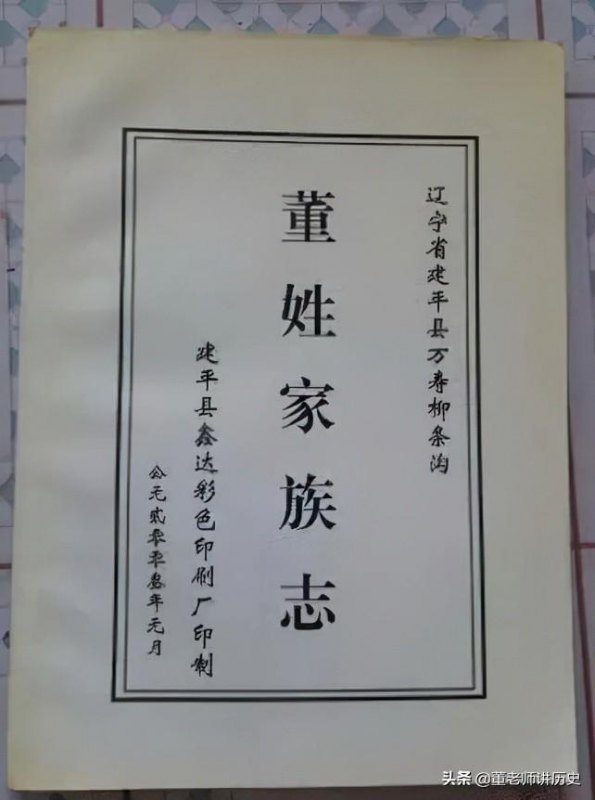 辽宁省建平县万寿柳条沟
董姓家族志
建平县鑫达彩色印刷厂印制
公元贰零零叁年元月
头条 @董老师讲历史